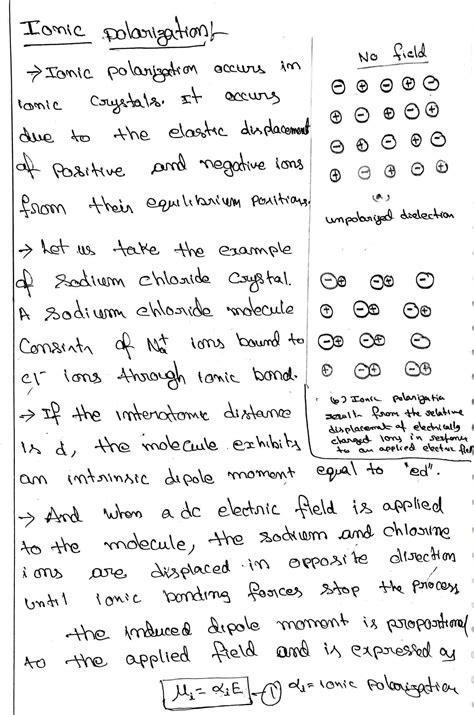 Ionic polarization!-
→ Ionic polarization occurs in
ionic crystals. It occurs
due to the elastic displacement
of positive and negative ions
from their equilibrium positions.
→ Let us take the example
of sodium chloride crystal.
A sodium chloride molecule
Consists of Na+ ions bound to
cl- ions through ionic bond.
→ If the interatomic distance
is d, the molecule exhibits
an intrinsic dipole moment equal to "ed".
→ And when a dc electric field is applied
to the molecule, the sodium and chlorine
ions are displaced in opposite direction
until ionic bonding forces stop the process
the induced dipole moment is proportional
to the applied field and is expressed as
μi = αiE -① αi = ionic polarization
No field
⊖ ⊕ ⊖ ⊕ ⊖
⊕ ⊖ ⊕ ⊖ ⊕
⊖ ⊕ ⊖ ⊕ ⊖
⊕ ⊖ ⊕ ⊖ ⊕
(a)
unpolarized dielection
⊖⊕ ⊖⊕ ⊖
⊕ ⊖⊕ ⊖⊕
⊖⊕ ⊖⊕ ⊖
⊕ ⊖⊕ ⊖⊕
(b) Ionic polarization
results from the relative
displacement of electrically
charged ions in response
to an applied electric field